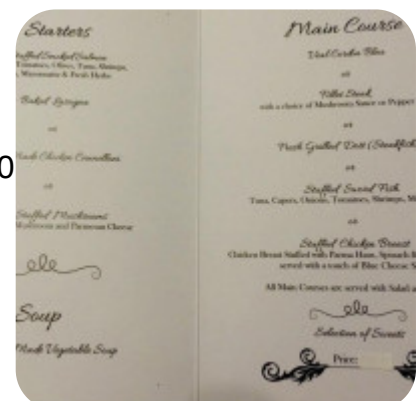 Starters
Stuffed Smoked Salmon
Tomatoes, Olives, Tuna, Shrimps,
Mayonnaise & Fresh Herbs
Baked Lasagna
or
Made Chicken Cannelloni
or
Stuffed Mushrooms
Mushroom and Parmesan Cheese
Soup
Made Vegetable Soup
Main Course
Veal Cordon Bleu
or
Fillet Steak
with a choice of Mushroom Sauce or Pepper
or
Fresh Grilled
or
Stuffed Sword Fish
Tuna, Capers, Onions, Tomatoes, Shrimps,
or
Stuffed Chicken Breast
Chicken Breast Stuffed with Parma Ham, Spinach
served with a touch of Blue Cheese
All Main Courses are served with Salad
Selection of Sweets
Price:
0